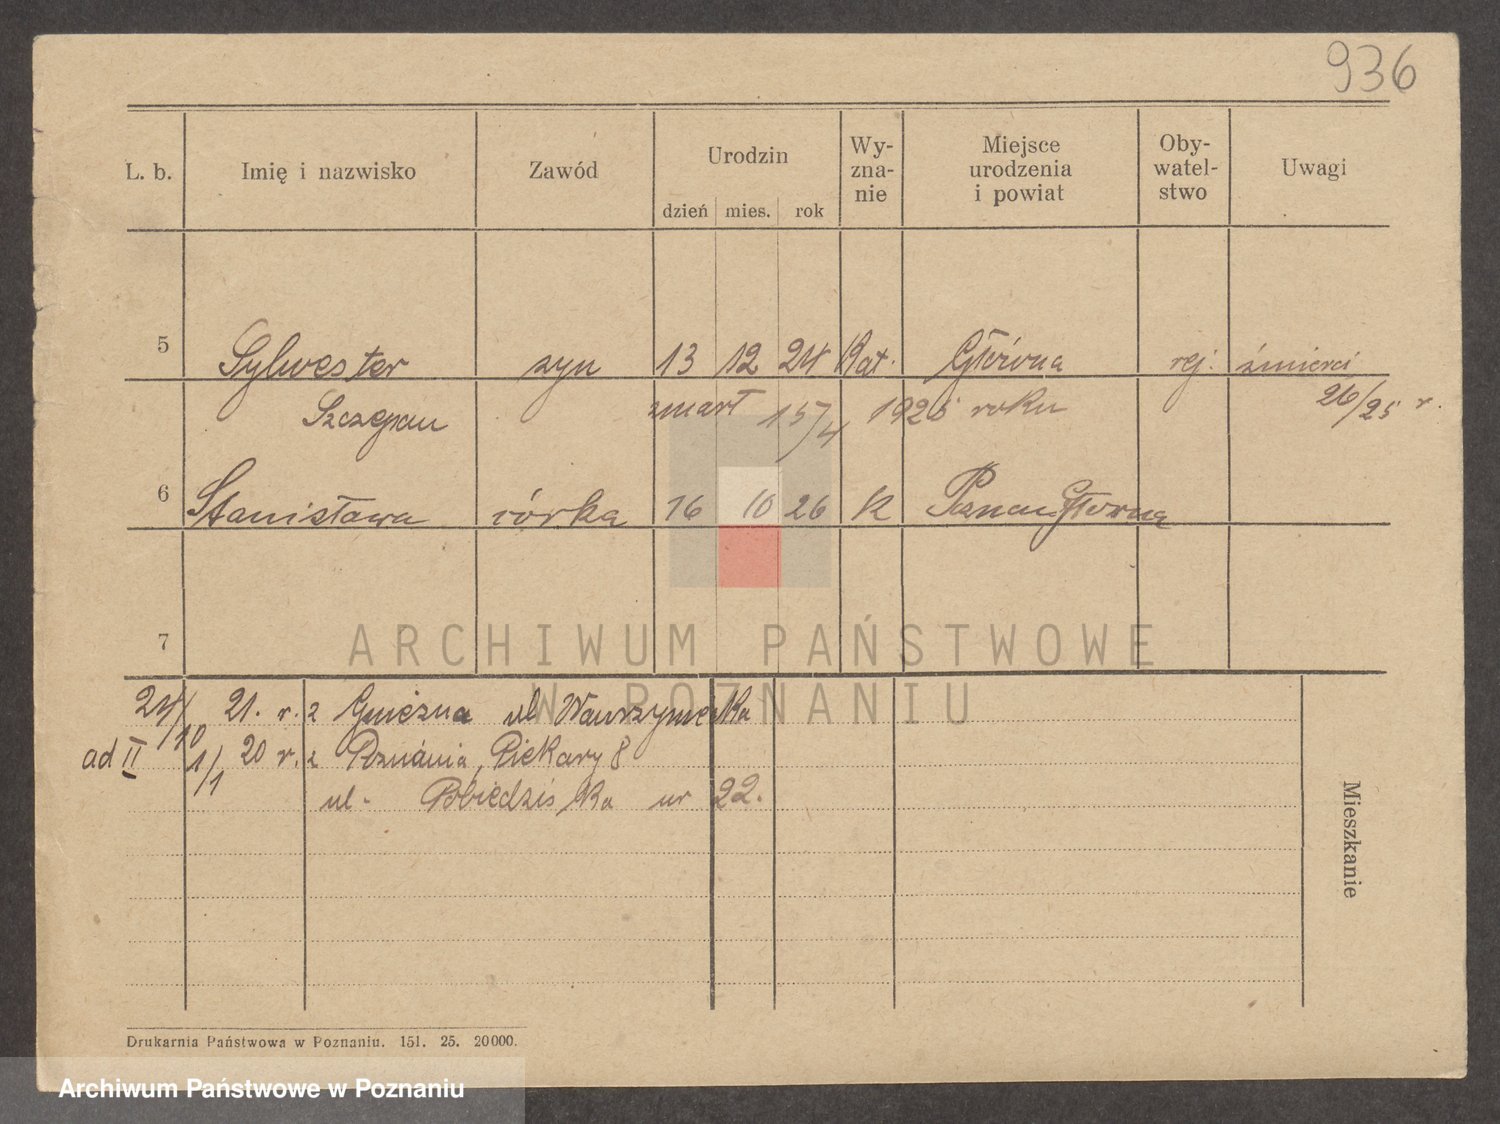 936
L. b. Imię i nazwisko Zawód Urodzin dzień mies. rok Wy-zna-nie Miejsce urodzenia i powiat Oby-watel-stwo Uwagi
5 Sylwester syn 13 12 24 Kat. Główna rej. śmierci
Szczepan zmarł 15/4 1925 roku 26/25 r.
6 Stanisława córka 16 10 26 k Poznań Główna
7
ARCHIWUM PAŃSTWOWE
W POZNANIU
24/10 21. r. z Gniezna ul Wawrzyńca
ad II 1/1 20 r. z Poznania, Piekary 8
ul. Pobiedziska nr 22.
Mieszkanie
Drukarnia Państwowa w Poznaniu. 151. 25. 20000.
Archiwum Państwowe w Poznaniu